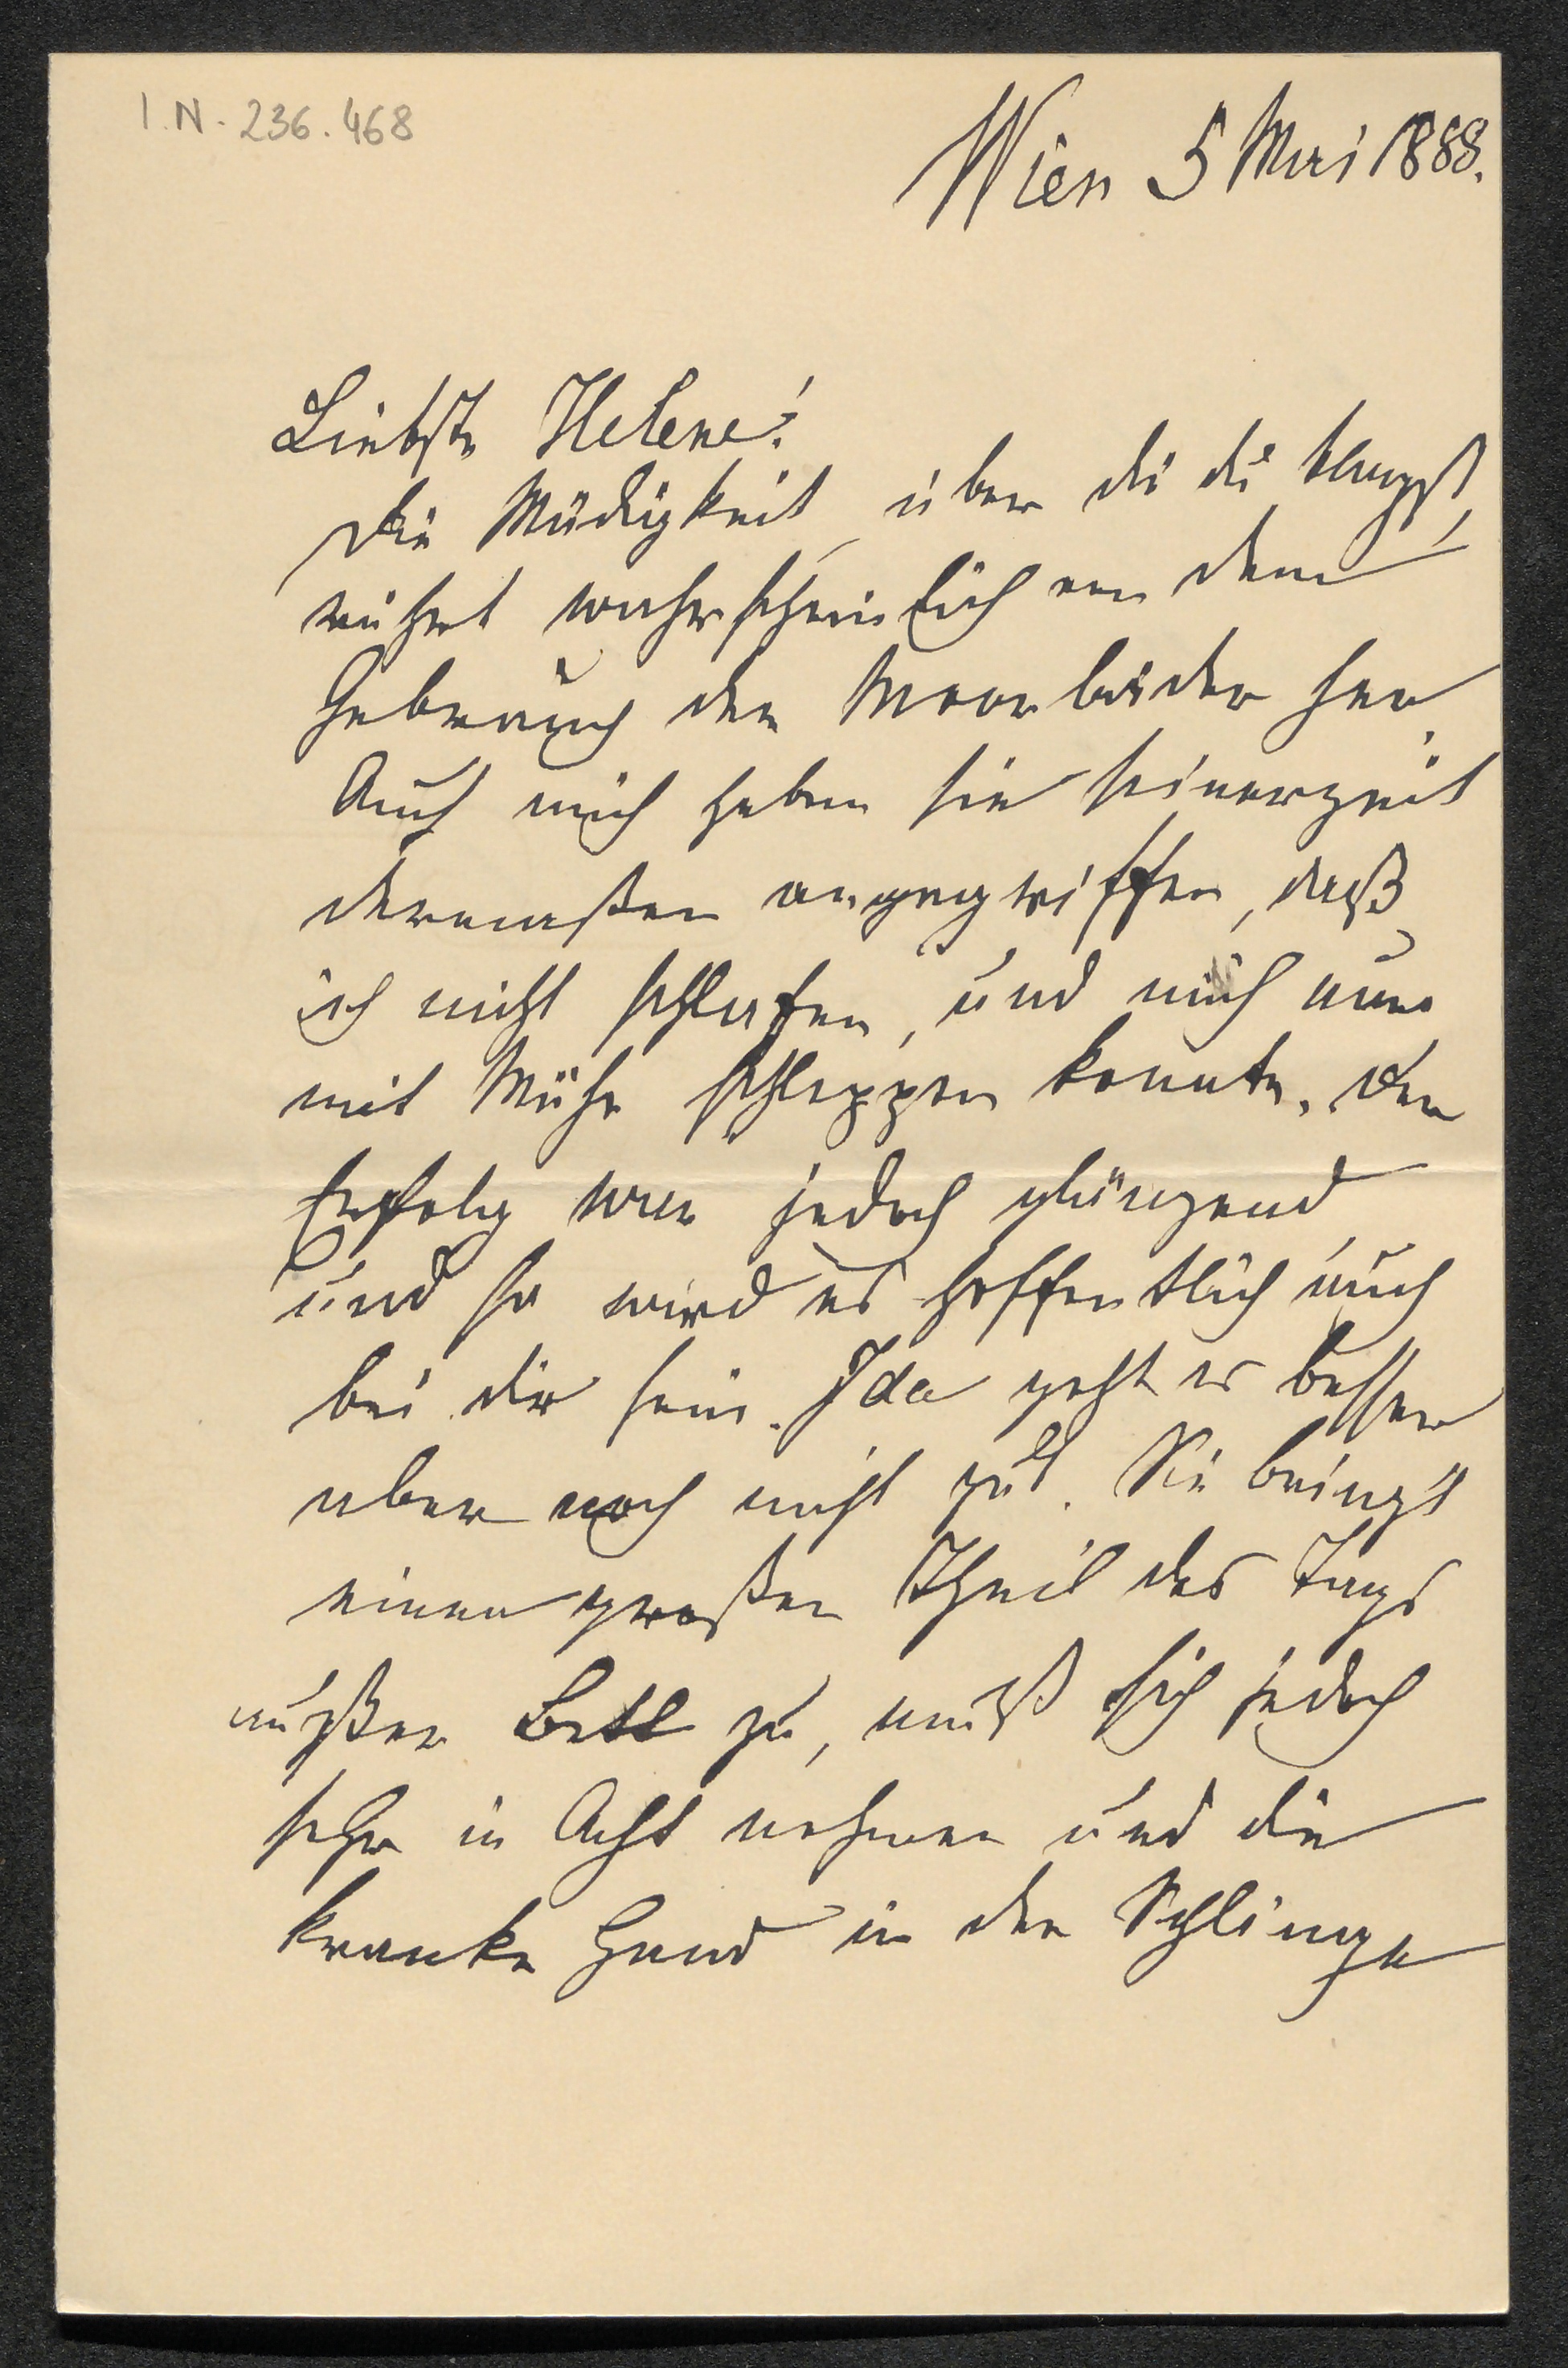 I.N. 236.468
Wien 5 Mai 1888.
Liebste Helene!
Die Müdigkeit, über die du klagst,
rührt wahrscheinlich von dem
Gebrauch der Moorbäder her
Auch mich haben sie seinerzeit
dermaßen angegriffen, daß
ich nicht schlafen, und mich nur
mit Mühe schleppen konnte. Der
Erfolg war jedoch glänzend
und so wird es hoffentlich auch
bei dir sein. Ida geht es besser
aber noch nicht gut. Sie bringt
einen großen Theil des Tags
außer Bett zu, muß sich jedoch
sehr in Acht nehmen und die
kranke Hand in der Schlinge